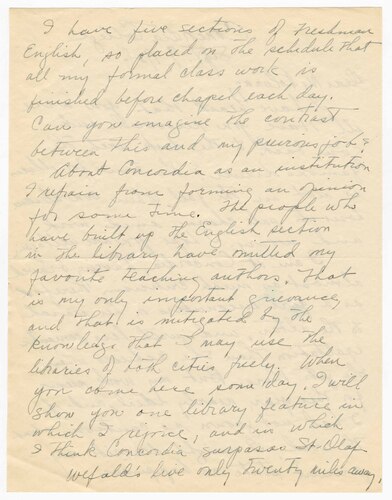 I have five sections of Freshman
English, so placed on the schedule that
all my formal class work is
finished before chapel each day.
Can you imagine the contrast
between this and my previous job?
About Concordia as an institution
I refrain from forming an opinion
for some time. The people who
have built up the English section
in the library have omitted my
favorite teaching authors. That
is my only important grievance,
and that is mitigated by the
knowledge that I may use the
libraries of both cities freely. When
you come here some day, I will
show you one library feature in
which I rejoice, and in which
I think Concordia surpasses St. Olaf
Wefald's live only twenty miles away,